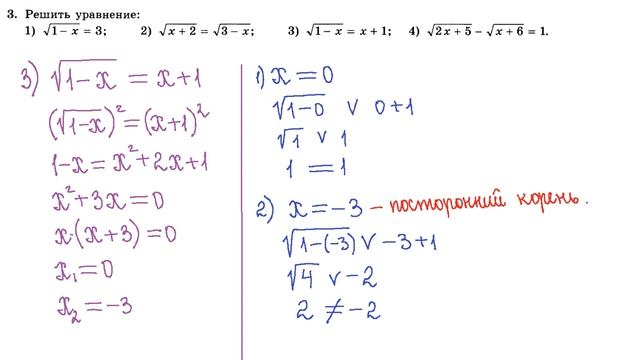 3. Решить уравнение:
1) √(1 − x) = 3; 2) √(x + 2) = √(3 − x); 3) √(1 − x) = x + 1; 4) √(2x + 5) − √(x + 6) = 1.
3) √(1−x) = x+1
(√(1−x))² = (x+1)²
1−x = x²+2x+1
x²+3x=0
x·(x+3)=0
x₁=0
x₂=−3
1) x=0
√(1−0) ∨ 0+1
√1 ∨ 1
1 = 1
2) x=−3 − посторонний корень.
√(1−(−3)) ∨ −3+1
√4 ∨ −2
2 ≠ −2